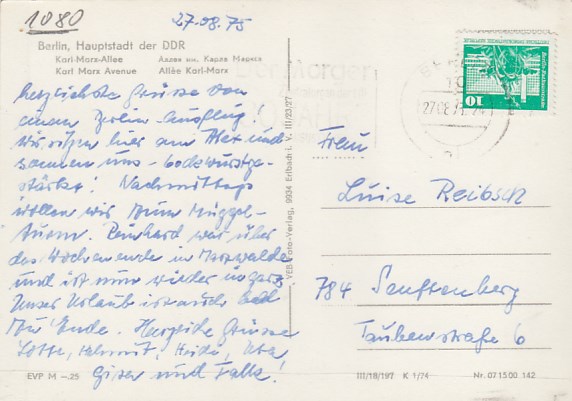 1080
27.08.75
Berlin, Hauptstadt der DDR
Karl-Marx-Allee Аллея им. Карла Маркса
Karl Marx Avenue Allée Karl-Marx
herzlichste Grüsse von
einem Berlin-Ausflug!
Wir sitzen hier am Alex und
sonnen uns - bockwurstge-
stärkt! Nachmittags
wollen wir zum Müggel-
turm. Reinhard war über
das Wochenende in
und ist nun wieder
Unser Urlaub ist auch bald
zu Ende. Herzliche Grüsse
Lotte, Helmut, Heide,
und Falk!
EVP M –.25
VEB Foto-Verlag, 9934 Erlbach i. V. III/23/27
10
Frau
Luise Reibsch
784 Senftenberg
Taubenstraße 6
III/18/197 K 1/74 Nr. 071500 142